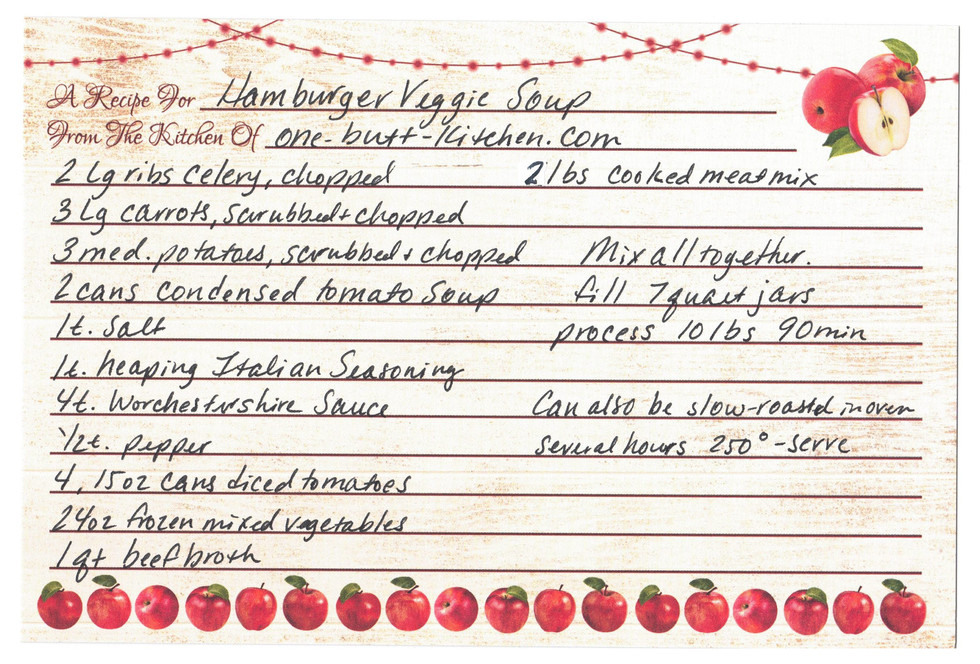 A Recipe For Hamburger Veggie Soup
From The Kitchen Of one-butt-kitchen.com
2 Lg ribs celery, chopped
3 Lg carrots, scrubbed + chopped
3 med. potatoes, scrubbed + chopped
2 cans condensed tomato Soup
1t. Salt
1t. heaping Italian Seasoning
4t. Worchestershire Sauce
1/2t. pepper
4, 15oz cans diced tomatoes
24oz frozen mixed vegetables
1 qt beef broth
2 lbs cooked meat mix
Mix all together.
fill 7 quart jars
process 10 lbs 90 min
Can also be slow-roasted in oven
several hours 250° - serve